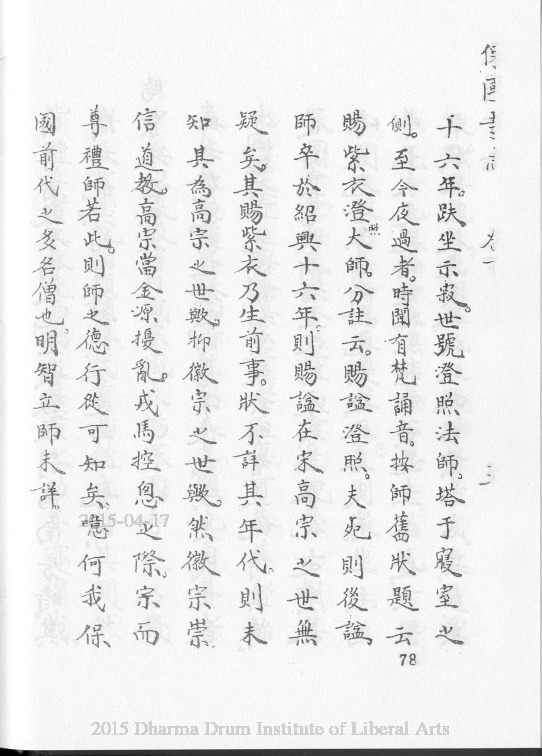 保國寺志 卷一 二
十六年。趺坐示寂。世號澄照法師。塔于寢室之
側。至今夜過者。時聞有梵誦音。按師舊狀題云
賜紫衣澄照大師。分註云。賜諡澄照。夫死則後諡。
師卒於紹興十六年。則賜諡在宋高宗之世無
疑矣。其賜紫衣乃生前事。狀不詳其年代、則未
知其為高宗之世歟。抑徽宗之世歟。然徽宗崇
信道教。高宗當金源擾亂。戎馬控傯之際。宗而
尊禮師若此。則師之德行從可知矣。噫何我保
國前代之多名僧也。明智立師未詳。
78
2015-04-17
2015 Dharma Drum Institute of Liberal Arts